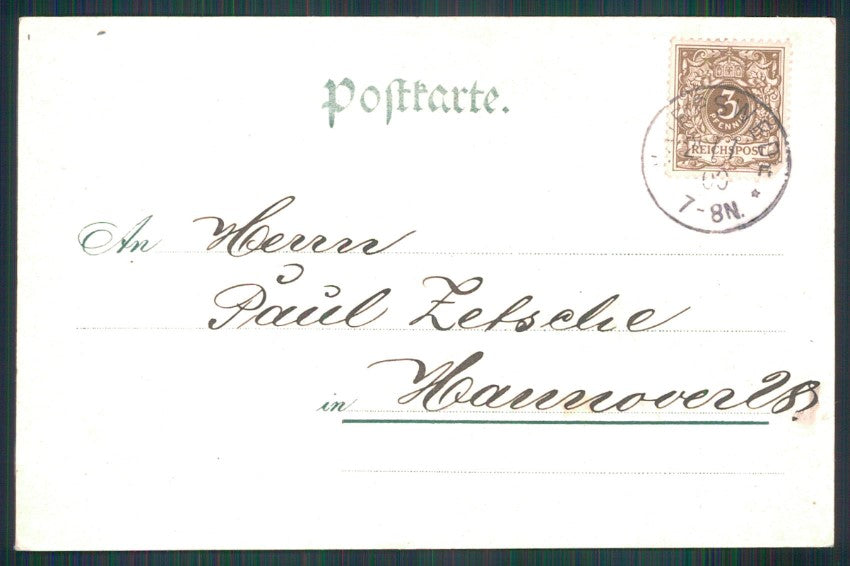 Postkarte.
3
PFENNIG
REICHSPOST
7-8N.
An Herrn
Paul Zetsche
in Hannover